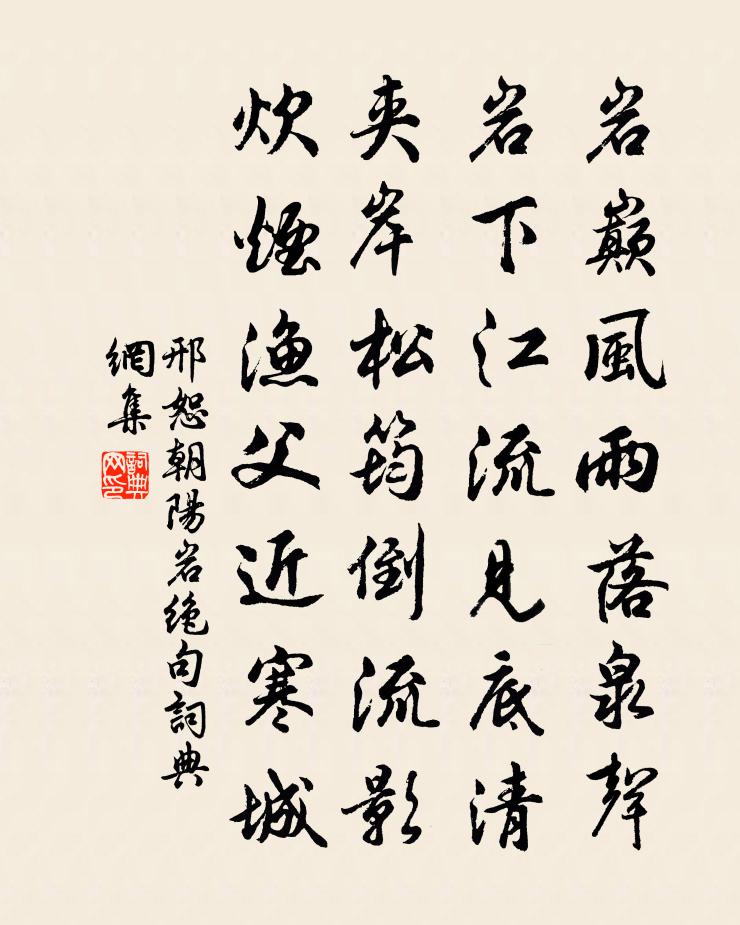 岩巔風雨落泉聲
岩下江流見底清
夾岸松筠倒流影
炊煙漁父近寒城
邢恕朝陽岩絶句詞典
網集
詞典
网印